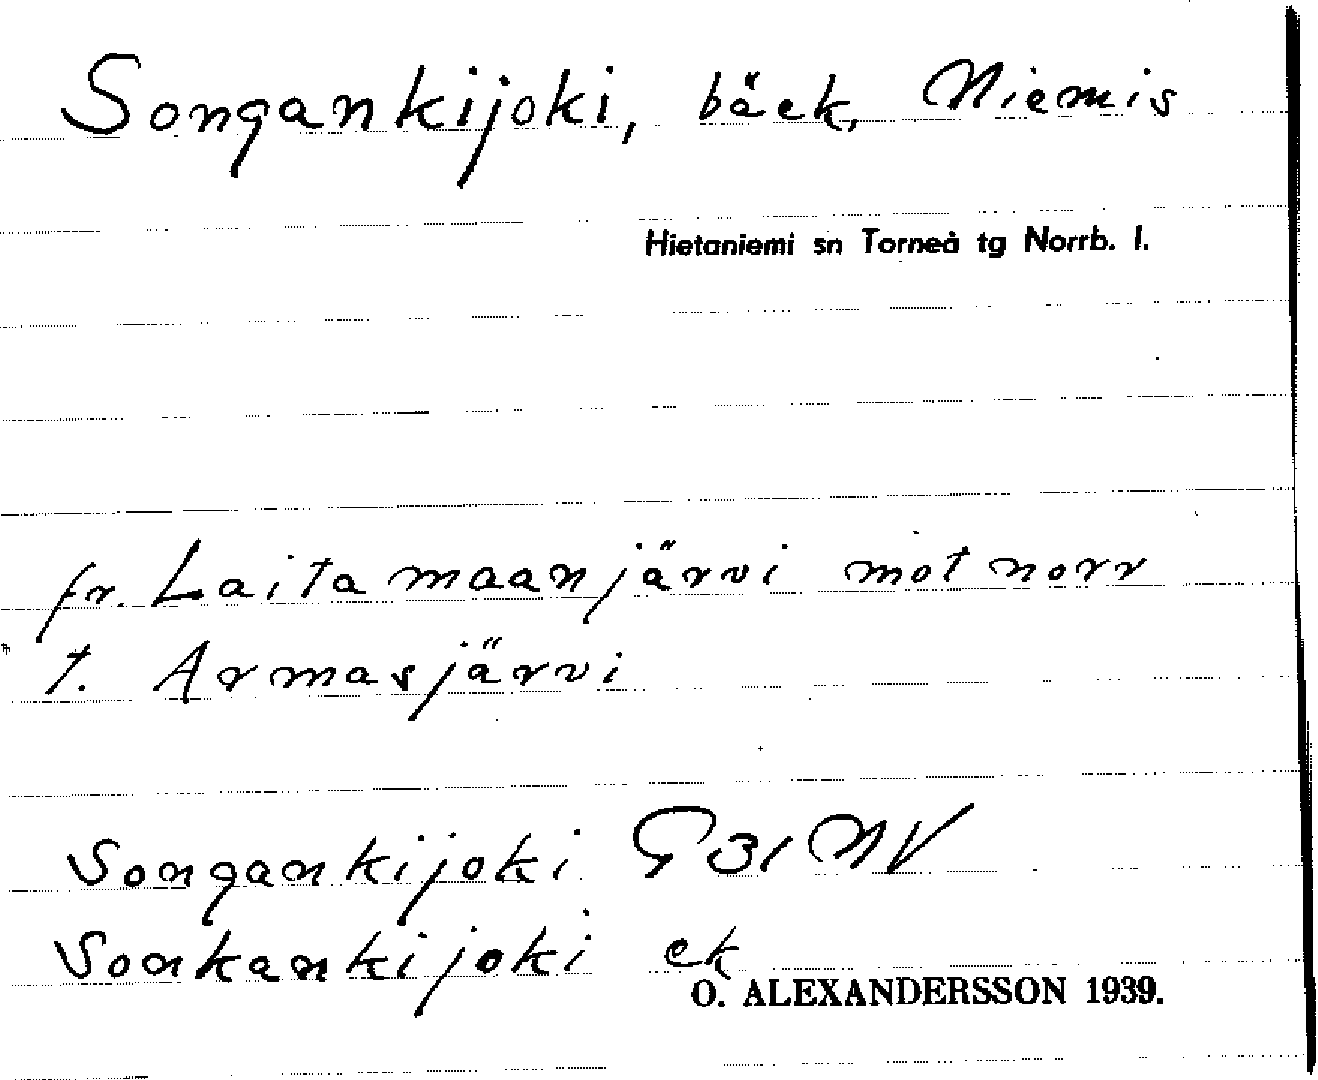 Songankijoki, bäck, Niemis
Hietaniemi sn Torneå tg Norrb. l.
fr. Laitamaanjärvi mot norr
t. Armasjärvi
Songankijoki G 31 NV
Sonkankijoki ek
O. ALEXANDERSSON 1939.